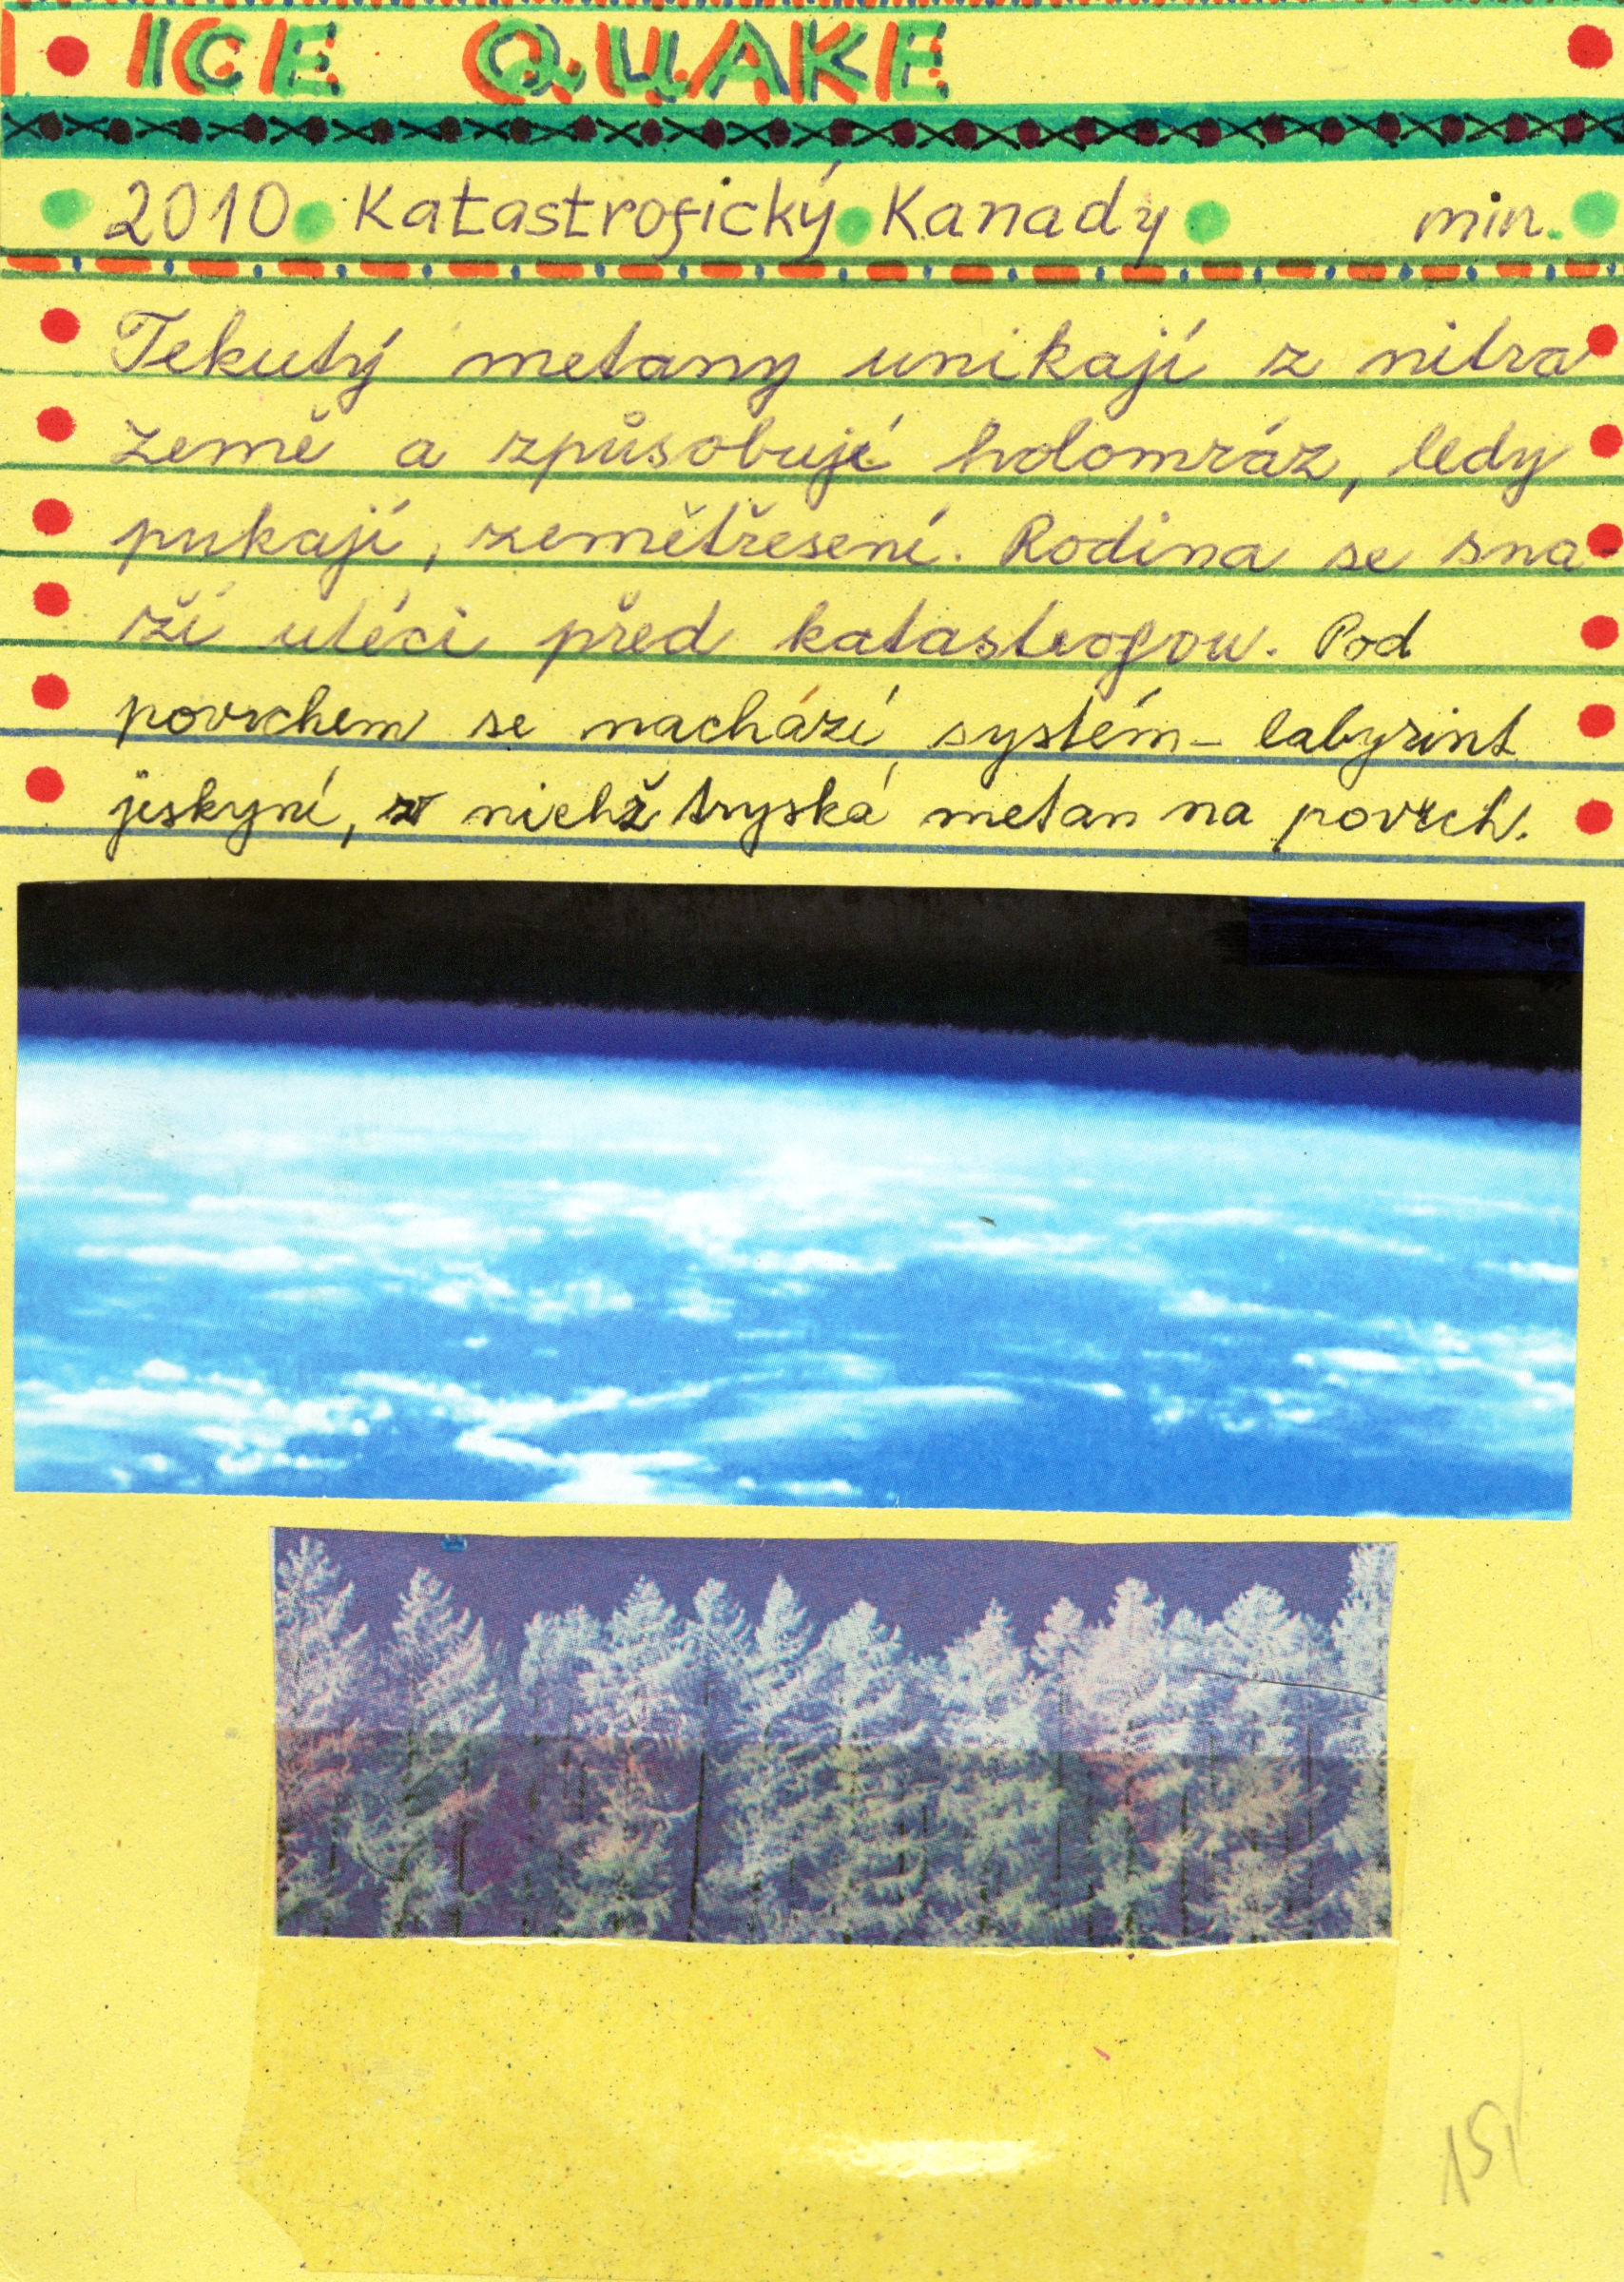 ICE QUAKE
2010 Katastrofický Kanady min.
Tekutý metany unikají z nitra
země a způsobují holomráz, ledy
pukají, zemětřesení. Rodina se sna-
ží utéci před katastrofou. Pod
povrchem se nachází systém - labyrint
jeskyní, z nichž tryská metan na povrch.